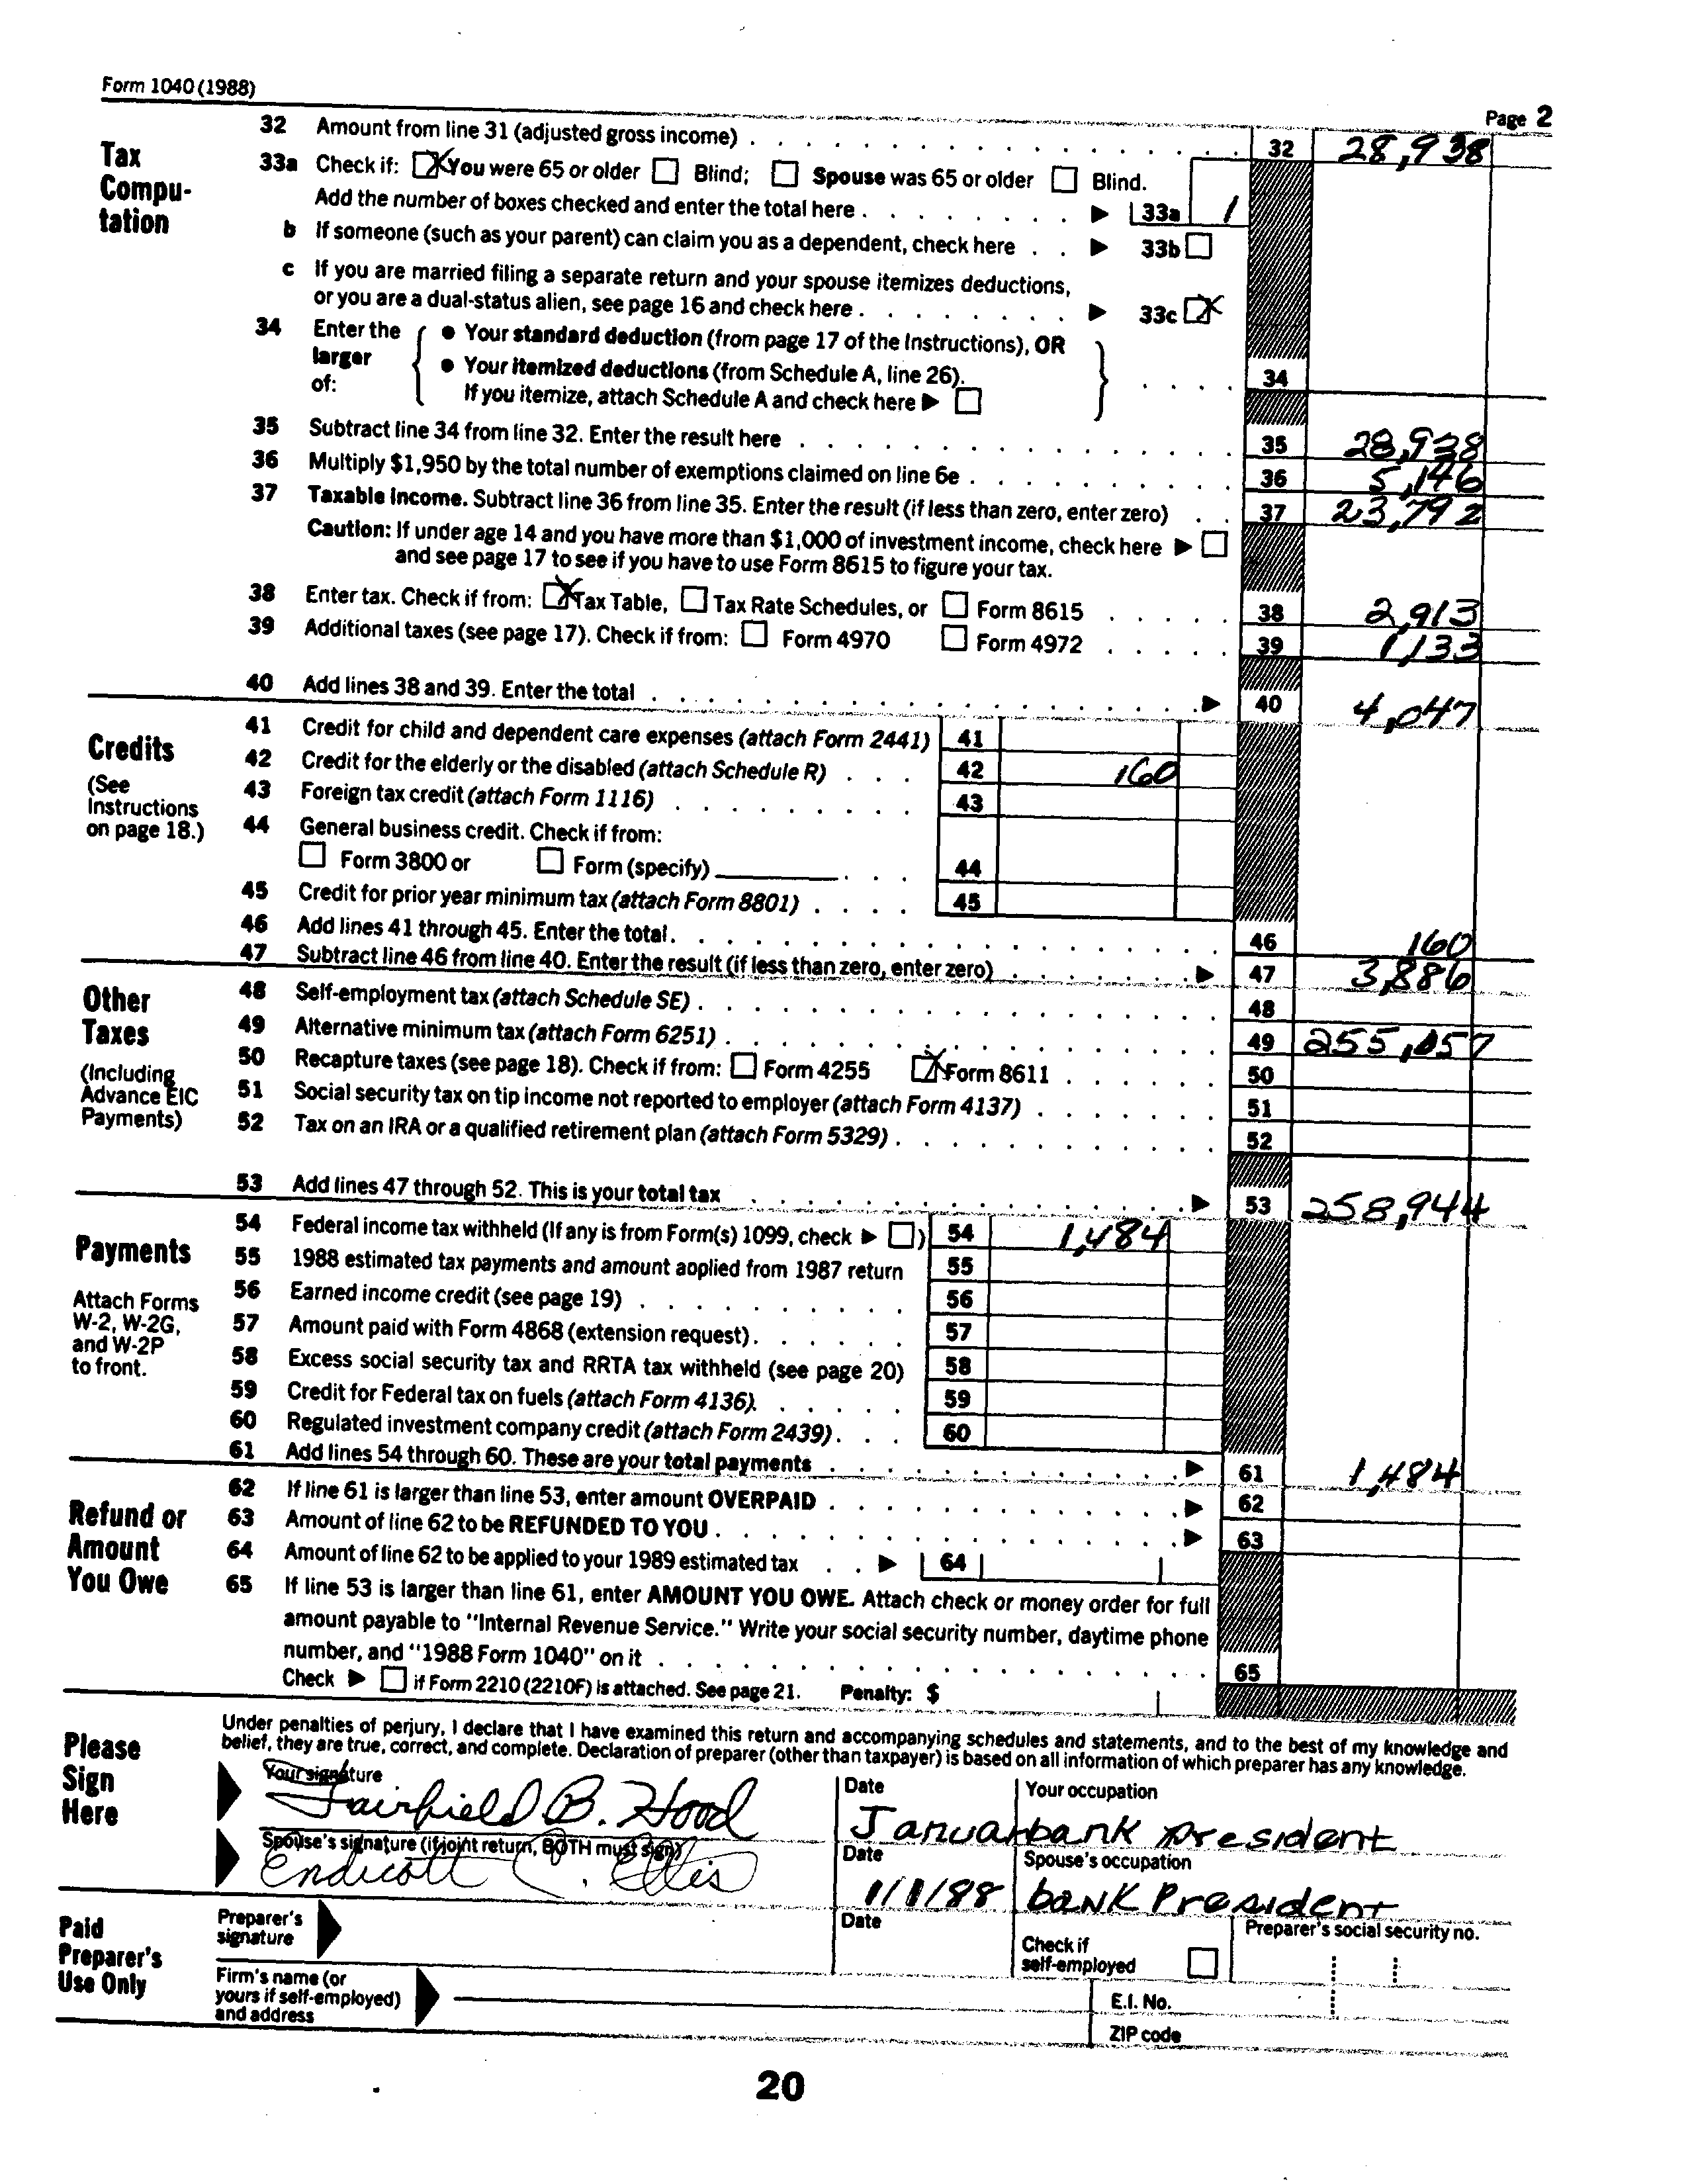 Form 1040 (1988)
Page 2
Tax Compu-tation
32 Amount from line 31 (adjusted gross income) . . . 32 28,938
33a Check if: ☒ You were 65 or older ☐ Blind; ☐ Spouse was 65 or older ☐ Blind.
Add the number of boxes checked and enter the total here . . . ▶ 33a 1
b If someone (such as your parent) can claim you as a dependent, check here . . ▶ 33b ☐
c If you are married filing a separate return and your spouse itemizes deductions,
or you are a dual-status alien, see page 16 and check here . . . ▶ 33c ☒
34 Enter the larger of: { ● Your standard deduction (from page 17 of the Instructions), OR
● Your itemized deductions (from Schedule A, line 26). } . . . . 34
If you itemize, attach Schedule A and check here ▶ ☐
35 Subtract line 34 from line 32. Enter the result here . . . 35 28,938
36 Multiply $1,950 by the total number of exemptions claimed on line 6e . . . 36 5,146
37 Taxable income. Subtract line 36 from line 35. Enter the result (if less than zero, enter zero) . . 37 23,792
Caution: If under age 14 and you have more than $1,000 of investment income, check here ▶ ☐
and see page 17 to see if you have to use Form 8615 to figure your tax.
38 Enter tax. Check if from: ☒ Tax Table, ☐ Tax Rate Schedules, or ☐ Form 8615 . . . 38 2,913
39 Additional taxes (see page 17). Check if from: ☐ Form 4970 ☐ Form 4972 . . . 39 1,133
40 Add lines 38 and 39. Enter the total . . . ▶ 40 4,047
Credits
(See Instructions on page 18.)
41 Credit for child and dependent care expenses (attach Form 2441) 41
42 Credit for the elderly or the disabled (attach Schedule R) . . . 42 160
43 Foreign tax credit (attach Form 1116) . . . 43
44 General business credit. Check if from:
☐ Form 3800 or ☐ Form (specify) ________ . . . 44
45 Credit for prior year minimum tax (attach Form 8801) . . . . 45
46 Add lines 41 through 45. Enter the total . . . 46 160
47 Subtract line 46 from line 40. Enter the result (if less than zero, enter zero) . . . ▶ 47 3,886
Other Taxes
(Including Advance EIC Payments)
48 Self-employment tax (attach Schedule SE) . . . 48
49 Alternative minimum tax (attach Form 6251) . . . 49 255,057
50 Recapture taxes (see page 18). Check if from: ☐ Form 4255 ☒ Form 8611 . . . 50
51 Social security tax on tip income not reported to employer (attach Form 4137) . . . 51
52 Tax on an IRA or a qualified retirement plan (attach Form 5329) . . . 52
53 Add lines 47 through 52. This is your total tax . . . ▶ 53 258,944
Payments
Attach Forms W-2, W-2G, and W-2P to front.
54 Federal income tax withheld (If any is from Form(s) 1099, check ▶ ☐) 54 1,484
55 1988 estimated tax payments and amount aoplied from 1987 return 55
56 Earned income credit (see page 19) . . . 56
57 Amount paid with Form 4868 (extension request) . . . 57
58 Excess social security tax and RRTA tax withheld (see page 20) 58
59 Credit for Federal tax on fuels (attach Form 4136) . . . 59
60 Regulated investment company credit (attach Form 2439) . . . 60
61 Add lines 54 through 60. These are your total payments . . . ▶ 61 1,484
Refund or Amount You Owe
62 If line 61 is larger than line 53, enter amount OVERPAID . . . ▶ 62
63 Amount of line 62 to be REFUNDED TO YOU . . . ▶ 63
64 Amount of line 62 to be applied to your 1989 estimated tax . . ▶ 64
65 If line 53 is larger than line 61, enter AMOUNT YOU OWE. Attach check or money order for full
amount payable to "Internal Revenue Service." Write your social security number, daytime phone
number, and "1988 Form 1040" on it . . . 65
Check ▶ ☐ if Form 2210 (2210F) is attached. See page 21. Penalty: $
Please Sign Here
Under penalties of perjury, I declare that I have examined this return and accompanying schedules and statements, and to the best of my knowledge and
belief, they are true, correct, and complete. Declaration of preparer (other than taxpayer) is based on all information of which preparer has any knowledge.
Your signature Date Your occupation
Fairfield B. Hood Januar bank president
Spouse's signature (if joint return, BOTH must sign) Date Spouse's occupation
Endicott C. Ellis 1/1/88 bank President
Paid Preparer's Use Only
Preparer's signature Date Check if self-employed ☐ Preparer's social security no.
Firm's name (or yours if self-employed) and address
E.I. No.
ZIP code
20